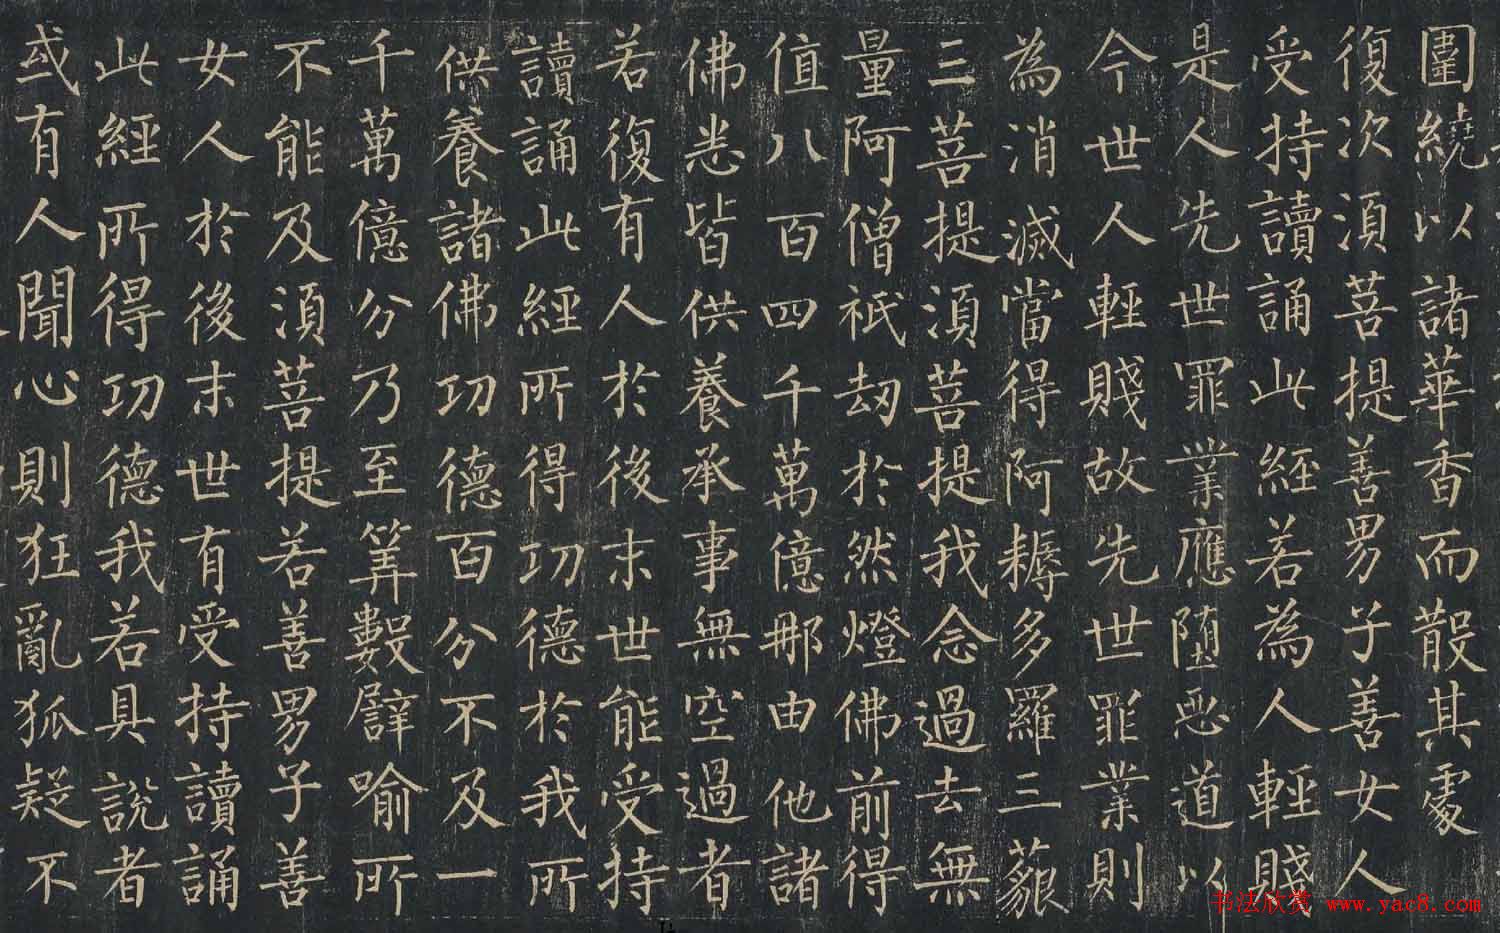 圍繞以諸華香而散其處
復次須菩提善男子善女人
受持讀誦此經若為人輕賤
是人先世罪業應墮惡道以
今世人輕賤故先世罪業則
為消滅當得阿耨多羅三藐
三菩提須菩提我念過去無
量阿僧祇劫於然燈佛前得
值八百四千萬億那由他諸
佛悉皆供養承事無空過者
若復有人於後末世能受持
讀誦此經所得功德於我所
供養諸佛功德百分不及一
千萬億分乃至算數譬喻所
不能及須菩提若善男子善
女人於後末世有受持讀誦
此經所得功德我若具說者
或有人聞心則狂亂狐疑不
书法欣赏 www.yac8.com